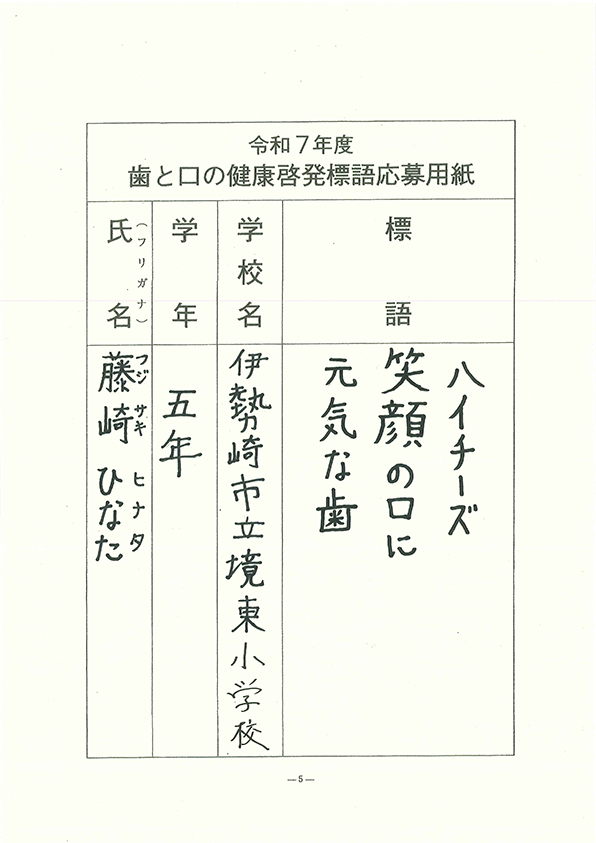 令和７年度
歯と口の健康啓発標語応募用紙
標語
ハイチーズ
笑顔の口に
元気な歯
学校名
伊勢崎市立境東小学校
学年
五年
氏名
（フリガナ）
フジサキ ヒナタ
藤崎 ひなた
—5—